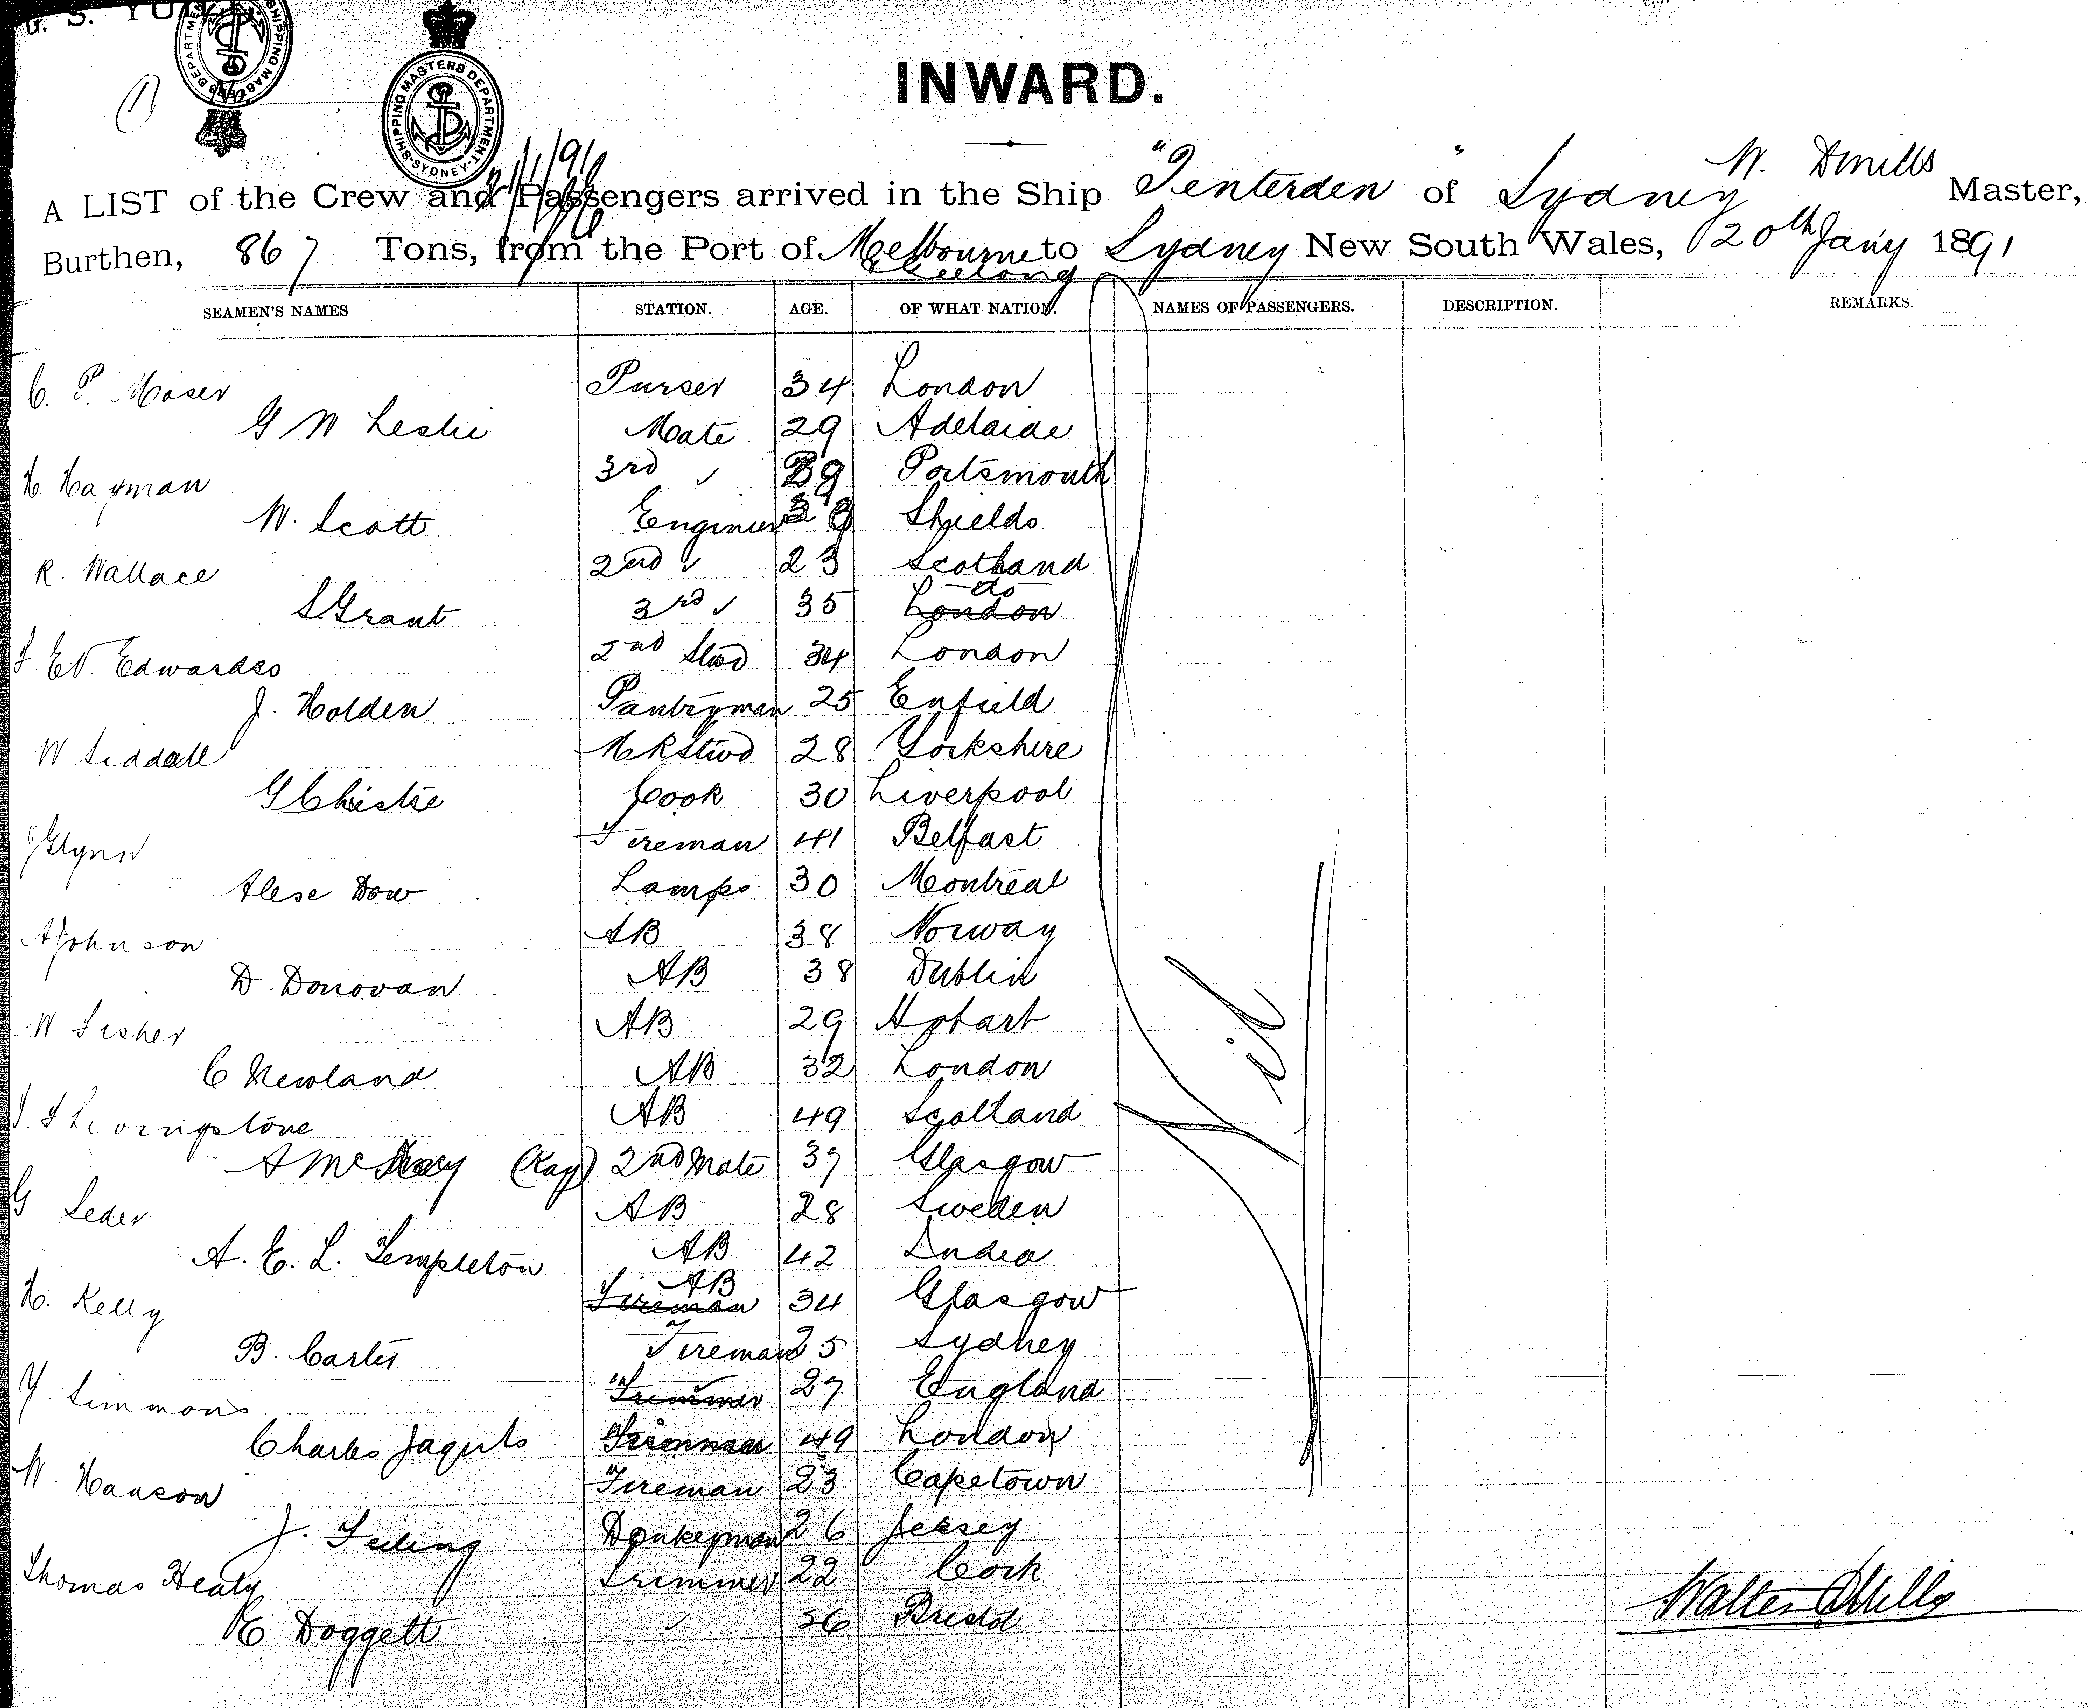 G. S. YUILL
SHIPPING MASTERS DEPARTMENT
SHIPPING MASTERS DEPARTMENT SYDNEY
INWARD.
A LIST of the Crew and Passengers arrived in the Ship "Tenterden" of Sydney W. D Mills Master,
Burthen, 867 Tons, from the Port of Melbourne to Sydney New South Wales, 20th Jany 1891
Geelong
SEAMEN'S NAMES STATION. AGE. OF WHAT NATION. NAMES OF PASSENGERS. DESCRIPTION. REMARKS.
C. P. Moser Purser 34 London
G W Leslie Mate 29 Adelaide
H Hayman 3rd " 29 Portsmouth
W. Scott Engineer Shields
R. Wallace 2nd " 23 Scotland
S Grant 3rd " 35 London do
Edwardes 2nd Stwd 34 London
J. Holden Pantryman 25 Enfield
W Siddall M R Stwd 28 Yorkshire
G Christie Cook 30 Liverpool
J Glynn Fireman 41 Belfast
Dow Lamps 30 Montreal
A Johnson AB 38 Norway
D Donovan AB 38 Dublin
W Fisher AB 29 Hobart
C Newland AB 32 London
Livingstone AB 49 Scotland
A McKay (Kay) 2nd Mate 37 Glasgow
G Leder AB 28 Sweden
A. E. L. Templeton AB 42 India
H. Kelly Fireman AB 34 Glasgow
B. Carter Fireman 25 Sydney
Simmons Trimmer 27 England
Charles 49 London
W. Hanson Fireman 23 Capetown
J. Donkeyman 26 Jersey
Thomas Healy Trimmer 22 Cork
E Doggett " 26 Bristol
Nil
Walter D Mills